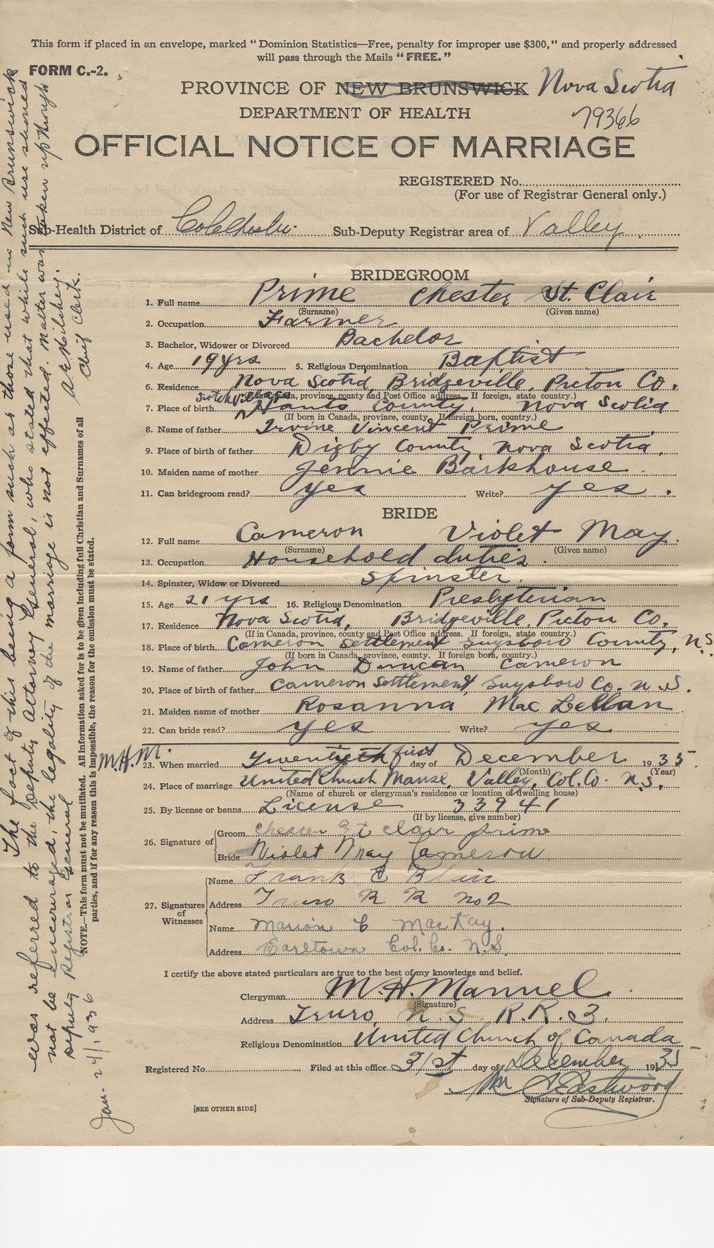 This form if placed in an envelope, marked "Dominion Statistics—Free, penalty for improper use $300," and properly addressed
will pass through the Mails "FREE."
FORM C.-2.
PROVINCE OF NEW BRUNSWICK Nova Scotia
DEPARTMENT OF HEALTH
79366
OFFICIAL NOTICE OF MARRIAGE
REGISTERED No.
(For use of Registrar General only.)
Sub-Health District of Colchester Sub-Deputy Registrar area of Valley
BRIDEGROOM
1. Full name Prime Chester St. Clair
(Surname) (Given name)
2. Occupation Farmer
3. Bachelor, Widower or Divorced Bachelor
4. Age 19 yrs 5. Religious Denomination Baptist
6. Residence Nova Scotia, Bridgeville, Picton Co.
(If in Canada, province, county and Post Office address. If foreign, state country.)
7. Place of birth Scotch Village Hants County, Nova Scotia
(If born in Canada, province, county. If foreign born, country.)
8. Name of father Irvine Vincent Prime
9. Place of birth of father Digby County Nova Scotia.
10. Maiden name of mother Jennie Barkhouse
11. Can bridegroom read? yes Write? yes.
BRIDE
12. Full name Cameron Violet May.
(Surname) (Given name)
13. Occupation Household duties.
14. Spinster, Widow or Divorced Spinster
15. Age 21 yrs 16. Religious Denomination Presbyterian
17. Residence Nova Scotia, Bridgeville, Picton Co.
(If in Canada, province, county and Post Office address. If foreign, state country.)
18. Place of birth Cameron Settlement Guysboro County, N.S.
(If born in Canada, province, county. If foreign born, country.)
19. Name of father John Duncan Cameron
20. Place of birth of father Cameron Settlement, Guysboro Co. N.S.
21. Maiden name of mother Rosanna Mac Lellan
22. Can bride read? yes Write? yes
M.H.M.
23. When married Twentyth first day of December 1935
(Month) (Year)
24. Place of marriage United Church Manse, Valley, Col. Co. N.S.
(Name of church or clergyman's residence or location of dwelling house)
25. By license or banns License 33941
(If by license, give number)
26. Signature of Groom Chester St clair prime
Bride Violet May Cameron
27. Signatures of Witnesses
Name Frank C
Address Truro R R no 2
Name Marion C MacKay.
Address Earltown Col. Co. N.S.
I certify the above stated particulars are true to the best of my knowledge and belief.
Clergyman M. H. Manuel
(Signature)
Address Truro N.S R.R. 3.
Religious Denomination United Church of Canada
Registered No. Filed at this office 31st day of December 1935
Wm Eastwood
Signature of Sub-Deputy Registrar.
[SEE OTHER SIDE]
The fact of this being a form such as those used in New Brunswick
was referred to the Deputy Attorney General, who stated that while such use should
not be encouraged, the legality of the marriage is not affected. Matter was taken up through
Deputy Registrar General
Chief Clerk.
Jan. 24/1936
NOTE.—This form must not be mutilated. All information asked for is to be given including full Christian and Surnames of all
parties, and if for any reason this is impossible, the reason for the omission must be stated.